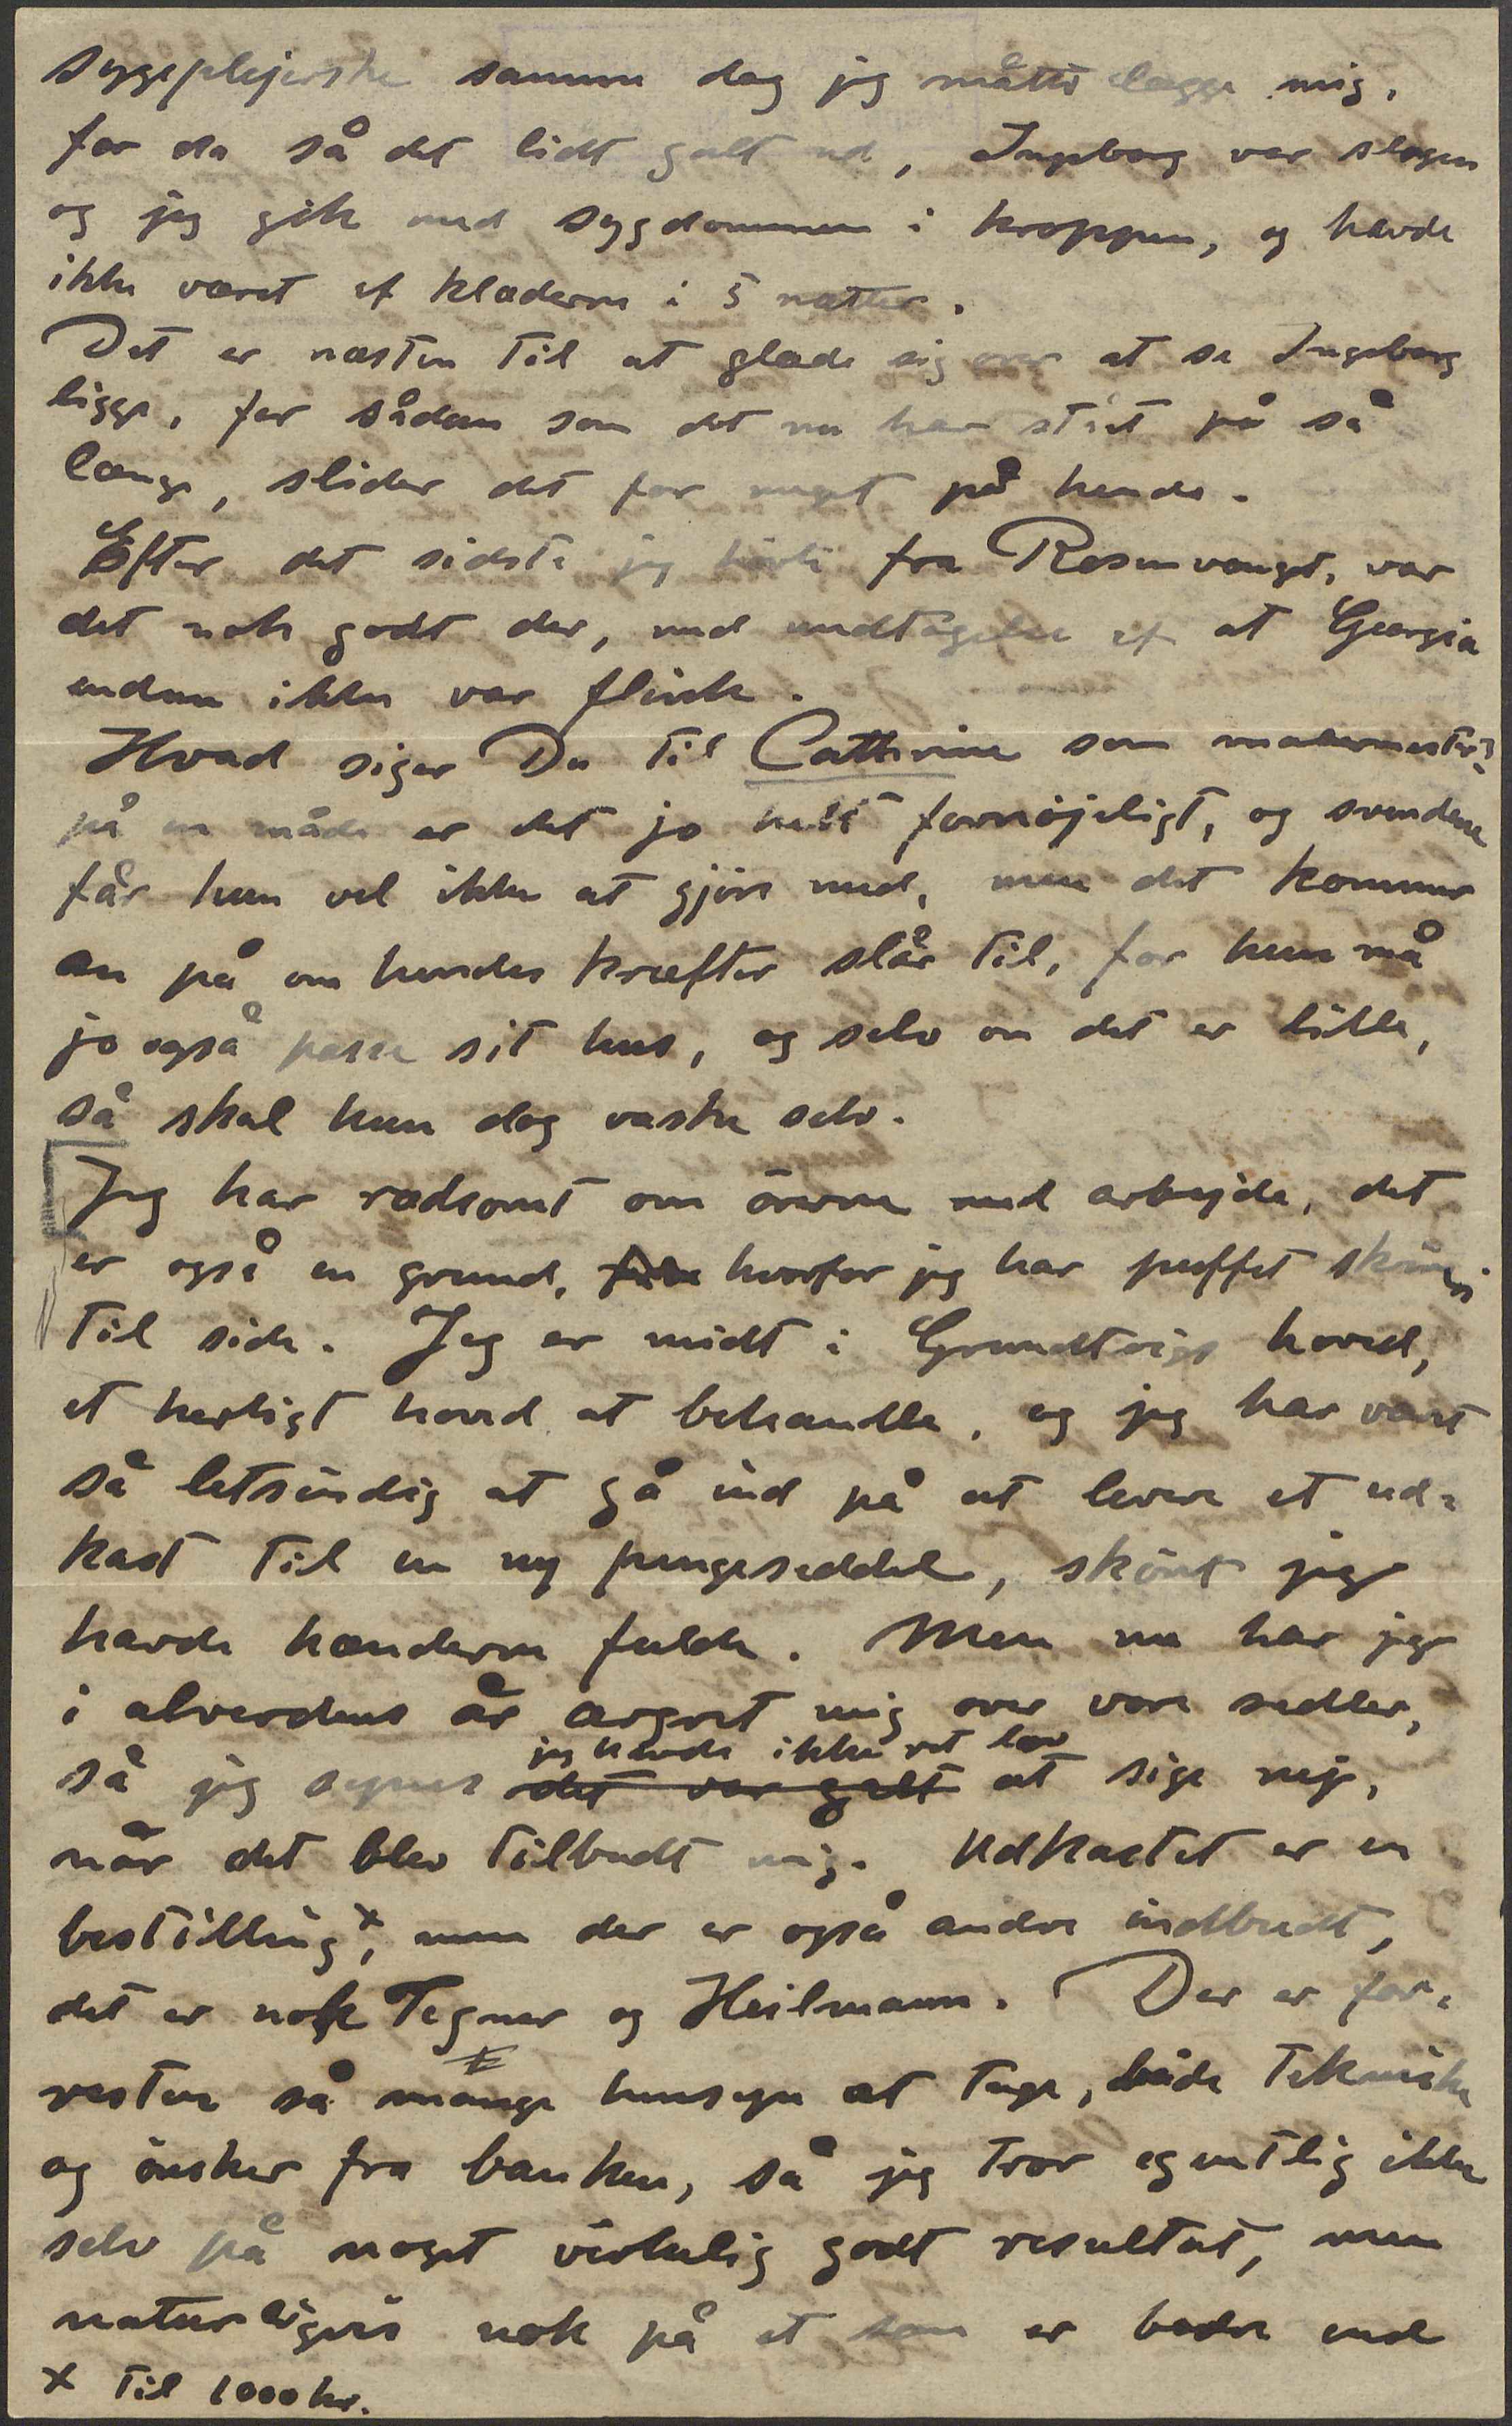 sygeplejerske samme dag jeg måtte lægge mig,
for da så det lidt galt ud, Ingeborg var slagen
og jeg gik med sygdommen i kroppen, og havde
ikke været af klæderne i 5 nætter.
Det er næsten til at glæde sig over at se Ingeborg
ligge, for sådan som det nu har stået på så
længe, slider det for meget på hende.
Efter det sidste jeg hørte fra Rosenvænget, var
det nok godt der, med undtagelse af at Georgia
endnu ikke var flink.
Hvad siger Du til Cathrine som malermester?
på en måde er det jo helt fornøjeligt, og svendene
får hun vel ikke at gjöre med, men det kommer
an på om hendes kræfter slår til, for hun må
jo også passe sit hus, og selv om det er lille,
så skal hun dog vaske selv.
Jeg har rædsomt om örerne med arbejde, det
er også en grund, hvorfor jeg har puffet
til side. Jeg er midt i Grundtvigs hoved,
et herligt hoved at behandle, og jeg har været
så letsindig at gå ind på at levere et ud=
kast til en ny pengeseddel, skönt jeg
havde hænderne fulde. Men nu har jeg
i alverdens år ærgret mig over vore sedler,
jeg havde ikke ret lov
så jeg synes det var galt at sige nej,
når det blev tilbudt mig. Udkastet er en
bestilling x, men der er også andre indbudt,
det er nok Tegner og Heilmann. Der er for=
resten så mange hensyn at tage, både tekniske
og önsker fra banken, så jeg tror egentlig ikke
selv på noget virkelig godt resultat, men
naturligvis nok på et som er bedre end
x til 1000 kr.